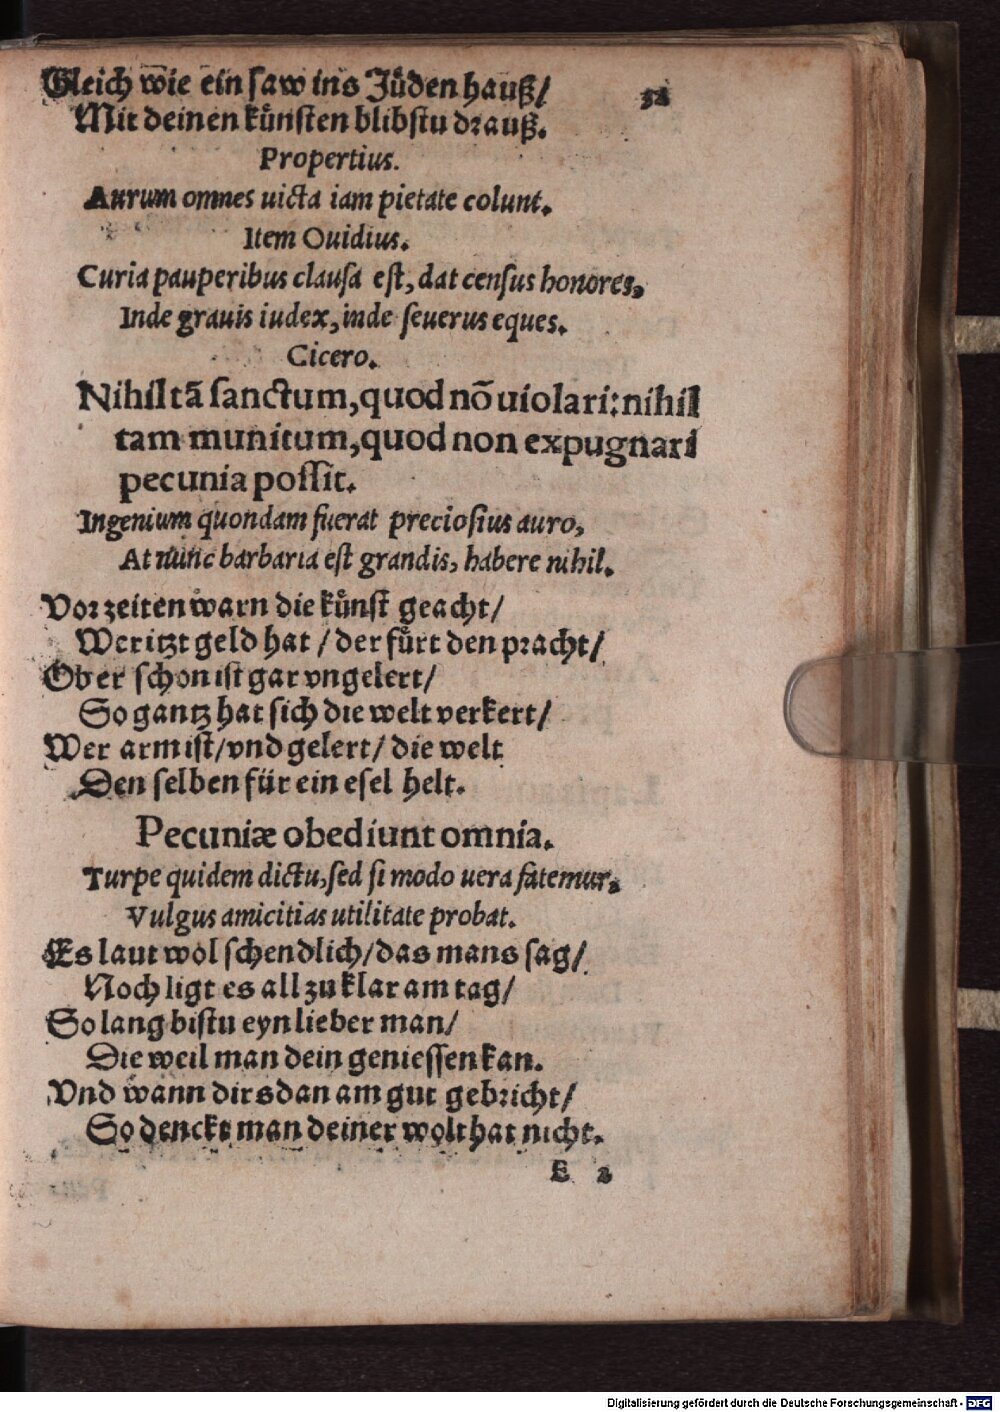 Gleich wie ein saw ins Juͤden hauß/
52
Mit deinen kuͤnsten blibstu drauß.
Propertius.
Aurum omnes uicta iam pietate colunt.
Item Ouidius.
Curia pauperibus clausa est, dat census honores,
Inde grauis iudex, inde seuerus eques.
Cicero.
Nihil tā sanctum, quod nō uiolari: nihil
tam munitum, quod non expugnari
pecunia possit.
Ingenium quondam fuerat preciosius auro,
At nunc barbaria est grandis, habere nihil.
Vor zeiten warn die kuͤnst geacht/
Wer itzt geld hat / der fuͤrt den pracht/
Ob er schon ist gar vngelert/
So gantz hat sich die welt verkert/
Wer arm ist/ vnd gelert/ die welt
Den selben für ein esel helt.
Pecuniæ obediunt omnia.
Turpe quidem dictu, sed si modo uera fatemur,
Vulgus amicitias utilitate probat.
Es laut wol schendlich/ das mans sag/
Noch ligt es all zu klar am tag/
So lang bistu eyn lieber man/
Die weil man dein geniessen kan.
Vnd wann dirs dan am gut gebricht/
So denckt man deiner wolthat nicht.
E 2
Digitalisierung gefördert durch die Deutsche Forschungsgemeinschaft - DFG